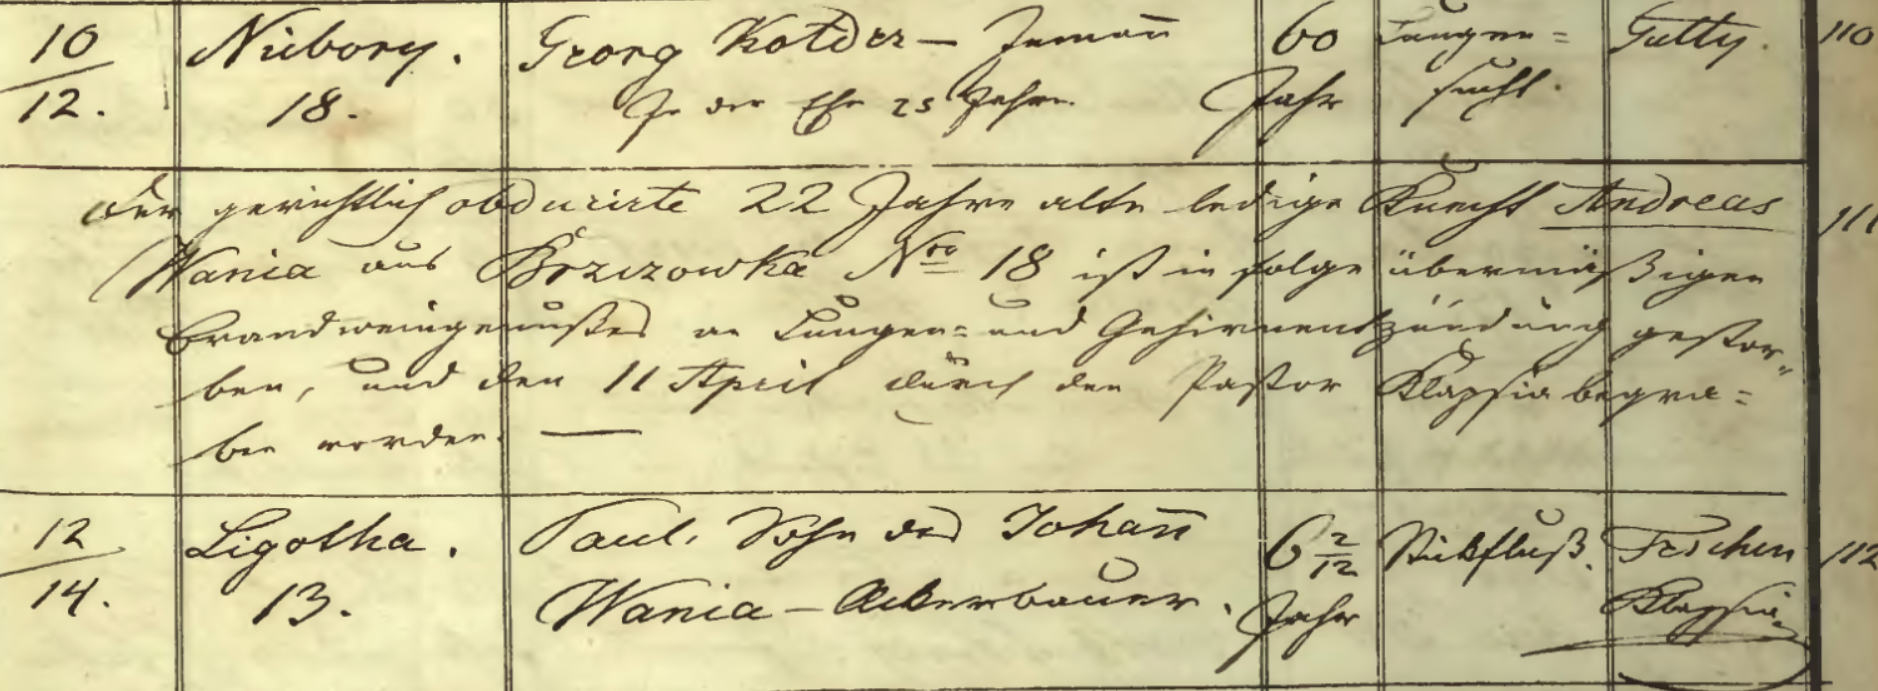 10 Niebory. Georg Kotder – Inman̄ 60 Lungen= Gutty. 110
12. 18. In der Ehe 25 Jahre. Jahr sucht.
Der gerichtlich obducirte 22 Jahre alte ledige Knecht Andreas 111
Wania aus Brzezowka Nro 18 ist in folge übermäßigen
Brandweingenußes an Lungen= und Gehirnentzündung gestor=
ben, und den 11 April durch den Pastor Klapsia begra=
ben worden. —
12 Ligotha. Paul, Sohn des Johan̄ 6 2/12 Stickfluß. Teschen 112
14. 13. Wania – Ackerbauer. Jahr Klapsia